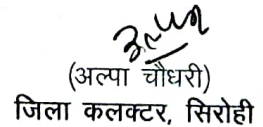 अल्पा
(अल्पा चौधरी)
जिला कलक्टर, सिरोही